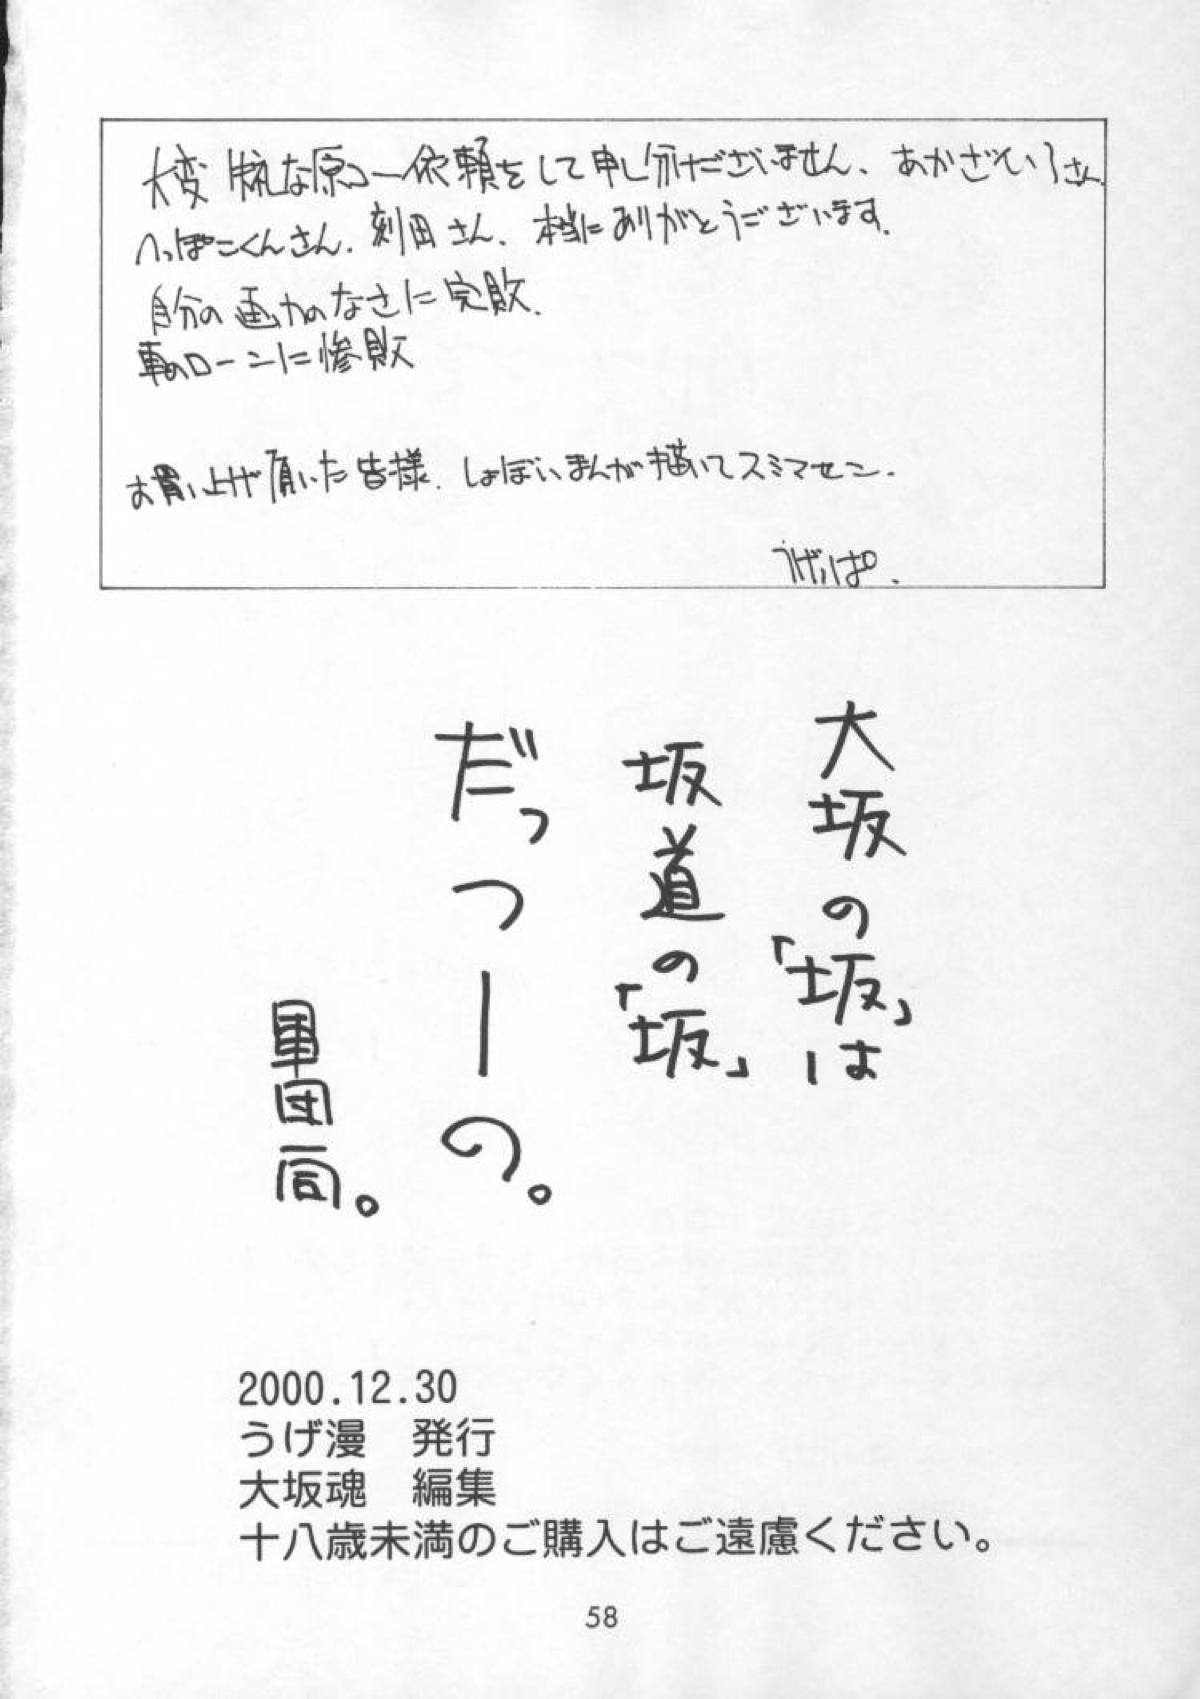 大変 な原コー依頼をして申し分けございません、あかざといろさん、
へっぽこくんさん、刻田さん、本当にありがとうございます。
自分の画力のなさに完敗、
車のローンに惨敗
お買い上げ頂いた皆様、しょぼいまんが描いてスミマセン、
うげっぱ、
大坂の「坂」は
坂道の「坂」
だっつーの。
軍団
2000.12.30
うげ漫　発行
大坂魂　編集
十八歳未満のご購入はご遠慮ください。
58